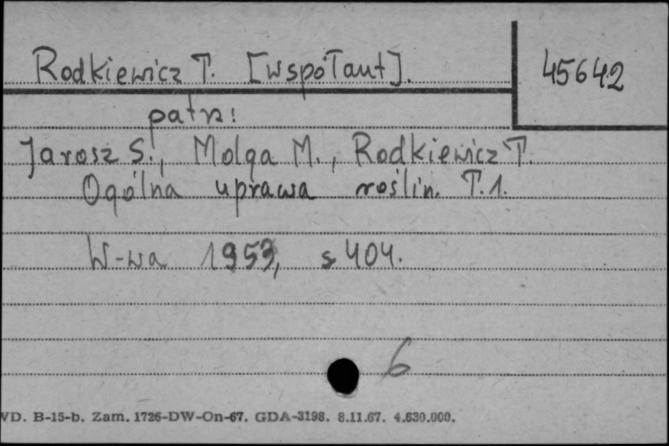 Rodkiewicz T. [współaut].
45642
patrz:
Jarosz S., Molga M., Rodkiewicz T.
Ogólna uprawa roślin. T.1.
W-wa 1953, s 404.
6
VD. B-15-b. Zam. 1726-DW-On-67. GDA-3198. 8.11.67. 4.630.000.